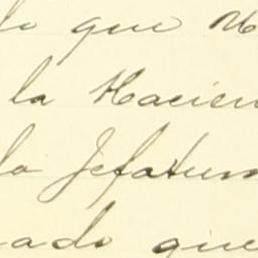 lo que
la Hacien
la Jefatura
ado que